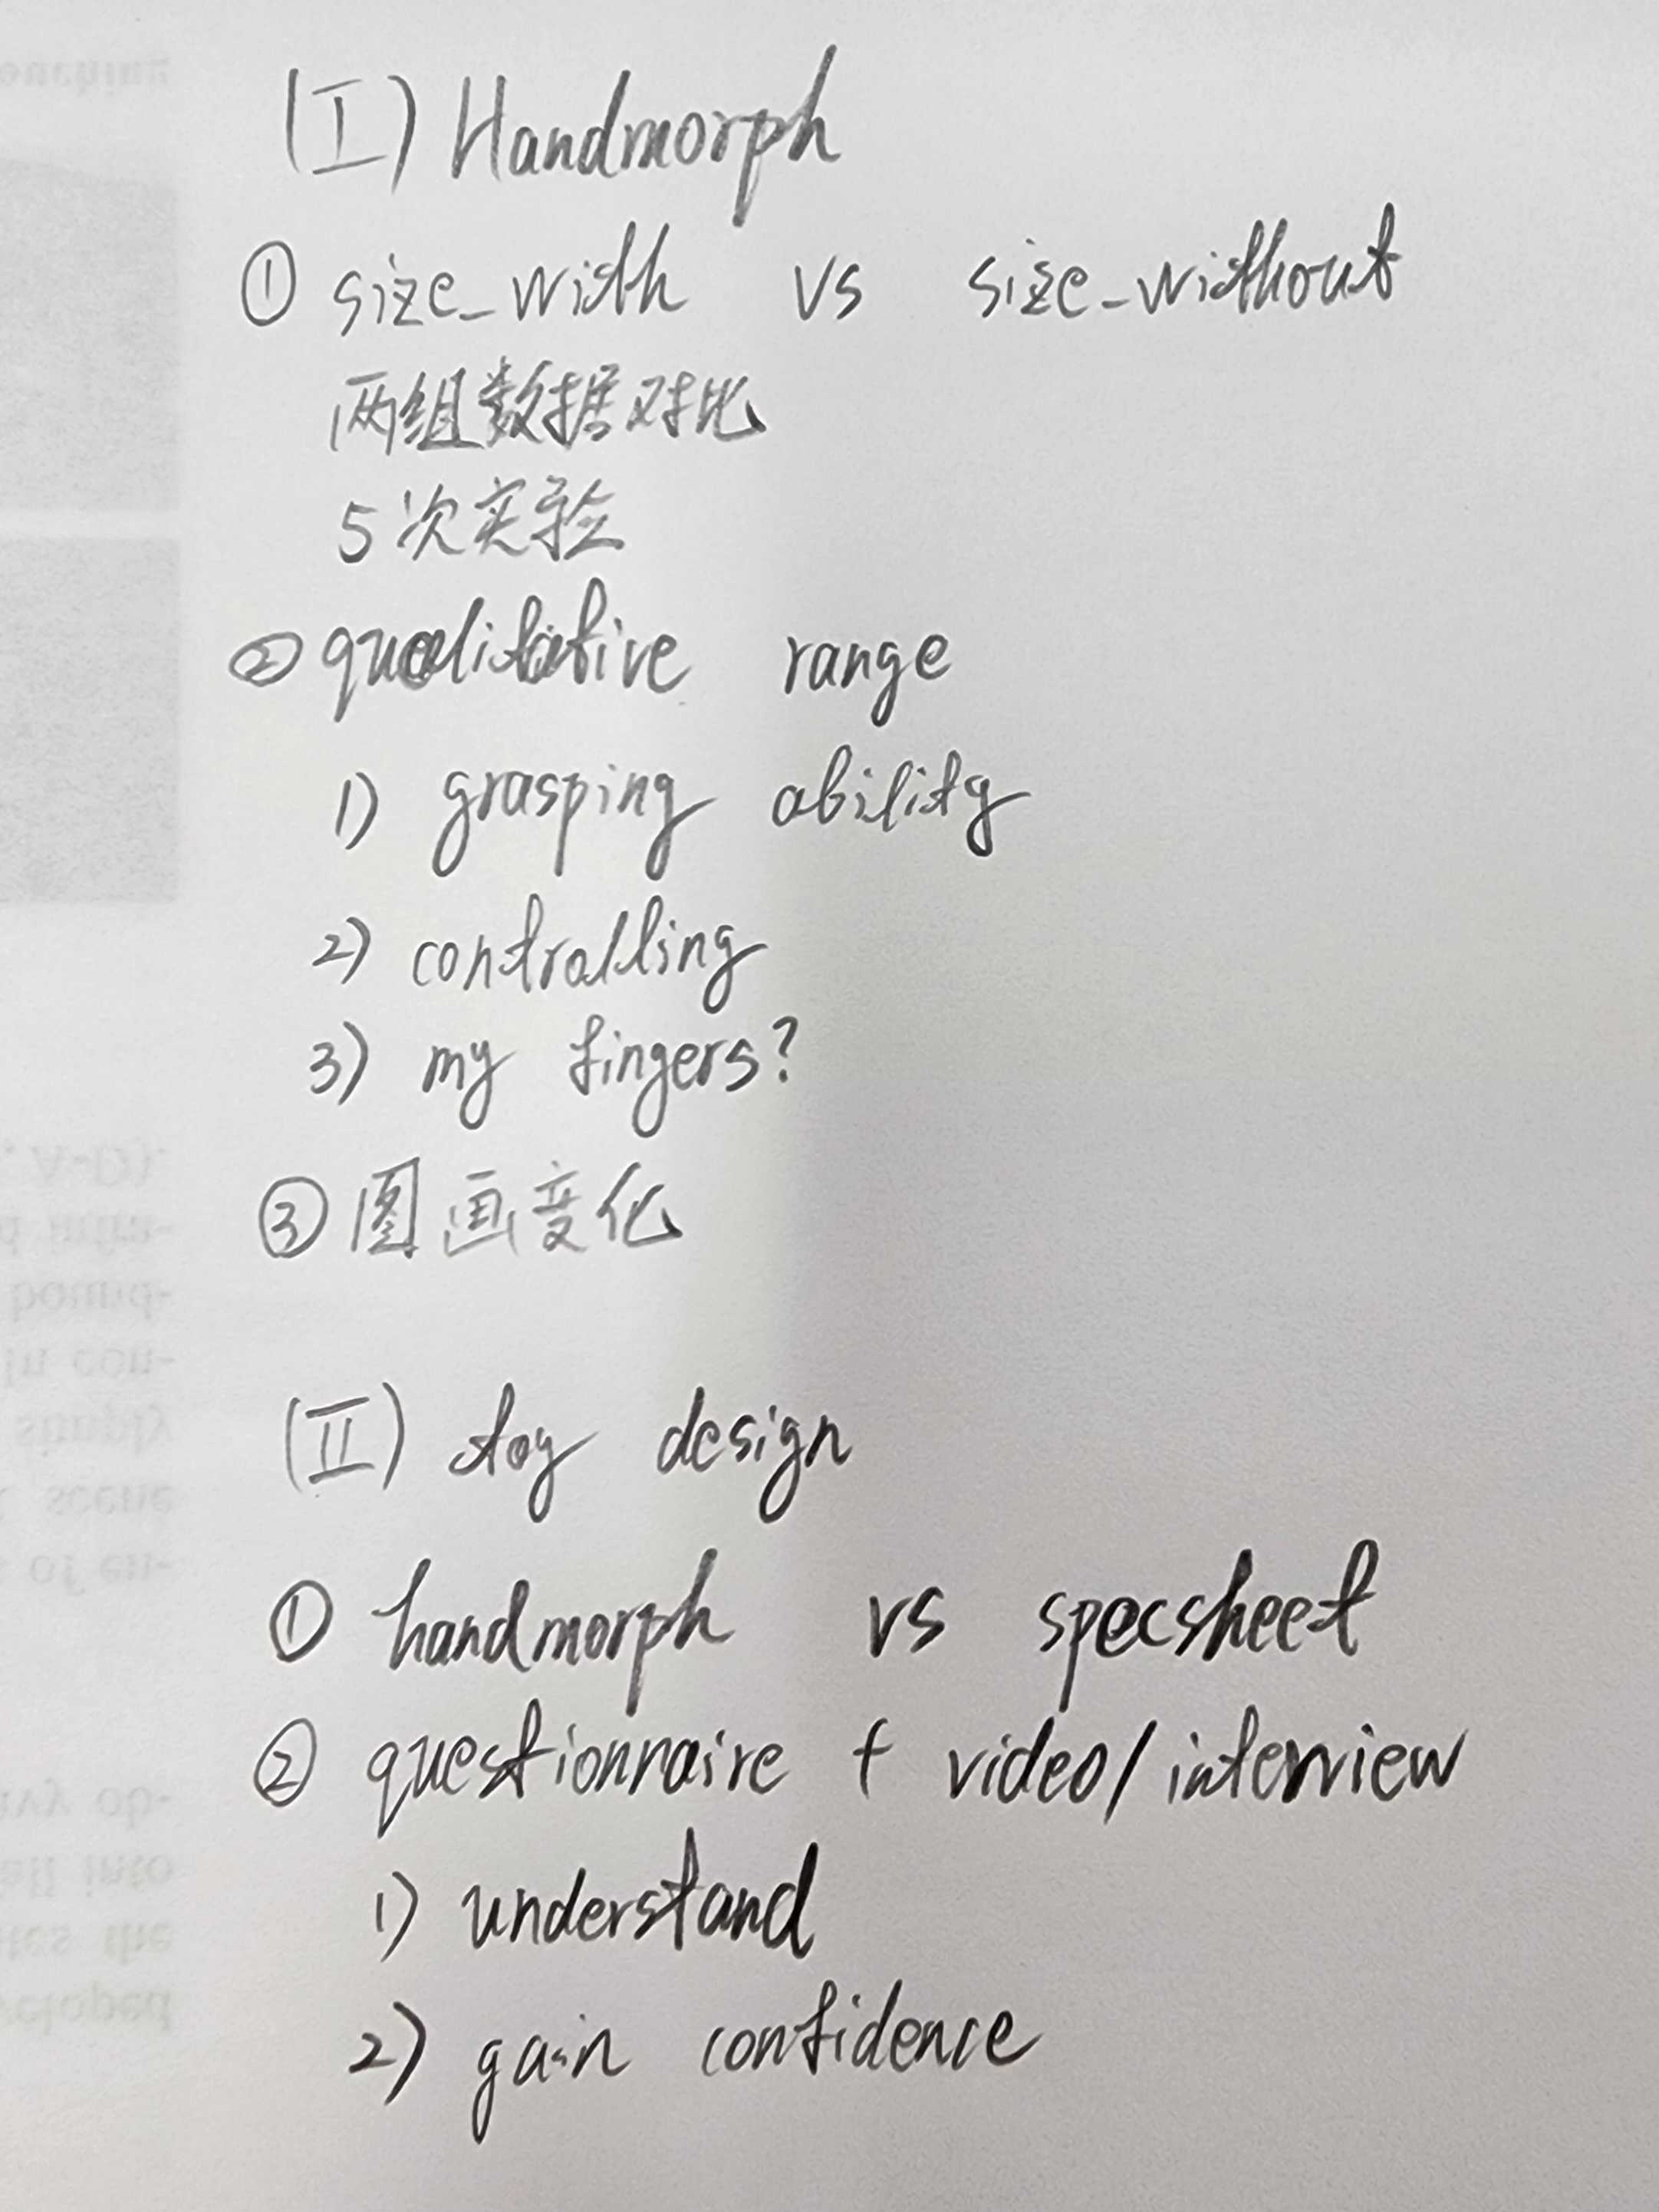 (I) Handmorph
① size_with vs size_without
两组数据对比
5次实验
② qualitative range
1) grasping ability
2) controlling
3) my fingers?
③ 图画变化
(II) toy design
① handmorph vs specsheet
② questionnaire + video/interview
1) understand
2) gain confidence